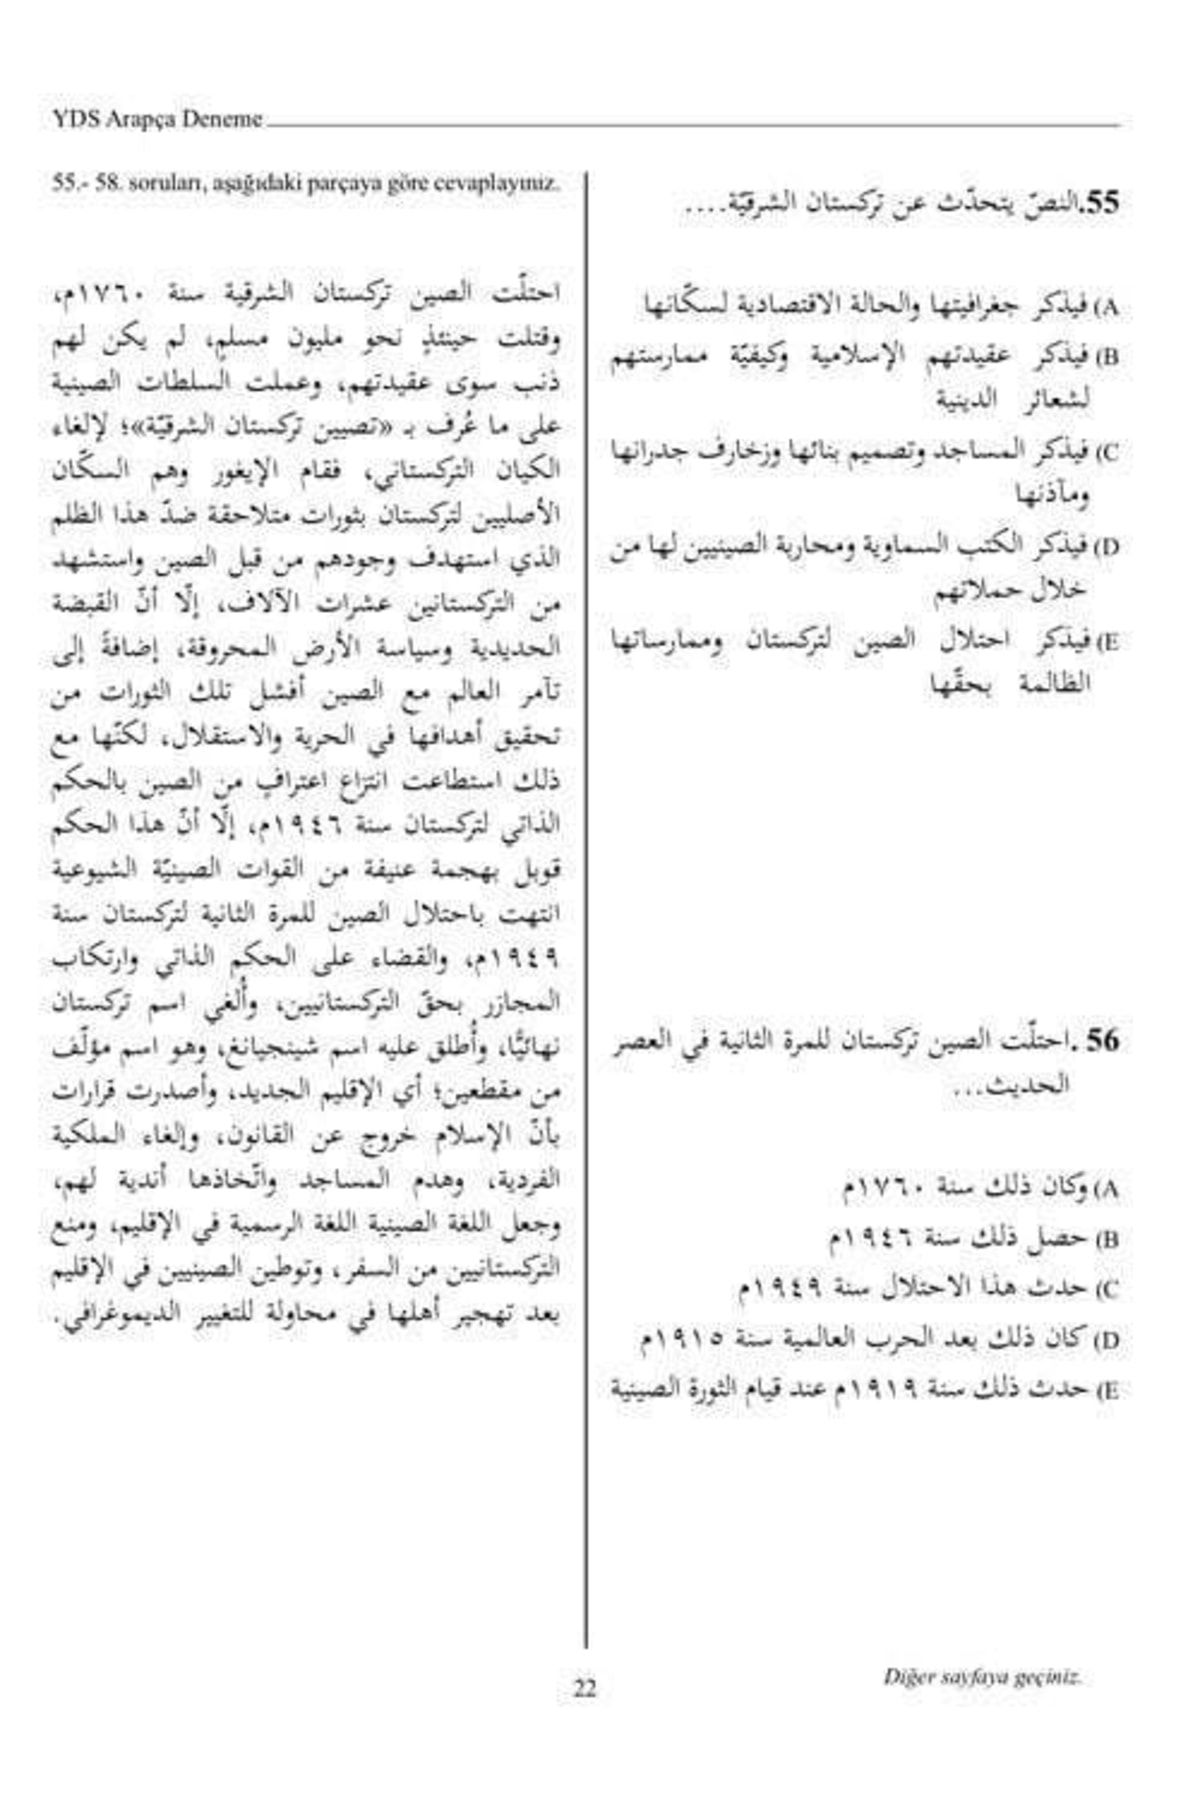 YDS Arapça Deneme
55.- 58. soruları, aşağıdaki parçaya göre cevaplayınız.
احتلّت الصين تركستان الشرقية سنة ١٧٦٠م،
وقتلت حينئذٍ نحو مليون مسلمٍ، لم يكن لهم
ذنب سوى عقيدتهم، وعملت السلطات الصينية
على ما عُرف بـ «تصيين تركستان الشرقيّة»؛ لإلغاء
الكيان التركستاني، فقام الإيغور وهم السكّان
الأصليين لتركستان بثورات متلاحقة ضدّ هذا الظلم
الذي استهدف وجودهم من قبل الصين واستشهد
من التركستانين عشرات الآلاف، إلّا أنّ القبضة
الحديدية وسياسة الأرض المحروقة، إضافةً إلى
تآمر العالم مع الصين أفشل تلك الثورات من
تحقيق أهدافها في الحرية والاستقلال، لكنّها مع
ذلك استطاعت انتزاع اعترافٍ من الصين بالحكم
الذاتي لتركستان سنة ١٩٤٦م، إلّا أنّ هذا الحكم
قوبل بهجمة عنيفة من القوات الصينيّة الشيوعية
انتهت باحتلال الصين للمرة الثانية لتركستان سنة
١٩٤٩م، والقضاء على الحكم الذاتي وارتكاب
المجازر بحقّ التركستانيين، وأُلغي اسم تركستان
نهائيًّا، وأُطلق عليه اسم شينجيانغ، وهو اسم مؤلّف
من مقطعين؛ أي الإقليم الجديد، وأصدرت قرارات
بأنّ الإسلام خروج عن القانون، وإلغاء الملكية
الفردية، وهدم المساجد واتّخاذها أندية لهم،
وجعل اللغة الصينية اللغة الرسمية في الإقليم، ومنع
التركستانيين من السفر، وتوطين الصينيين في الإقليم
بعد تهجير أهلها في محاولة للتغيير الديموغرافي.
55.النصّ يتحدّث عن تركستان الشرقيّة....
A) فيذكر جغرافيتها والحالة الاقتصادية لسكّانها
B) فيذكر عقيدتهم الإسلامية وكيفيّة ممارستهم
لشعائر الدينية
C) فيذكر المساجد وتصميم بنائها وزخارف جدرانها
ومآذنها
D) فيذكر الكتب السماوية ومحاربة الصينيين لها من
خلال حملاتهم
E) فيذكر احتلال الصين لتركستان وممارساتها
الظالمة بحقّها
56 .احتلّت الصين تركستان للمرة الثانية في العصر
الحديث...
A) وكان ذلك سنة ١٧٦٠م
B) حصل ذلك سنة ١٩٤٦م
C) حدث هذا الاحتلال سنة ١٩٤٩م
D) كان ذلك بعد الحرب العالمية سنة ١٩١٥م
E) حدث ذلك سنة ١٩١٩م عند قيام الثورة الصينية
Diğer sayfaya geçiniz.
22